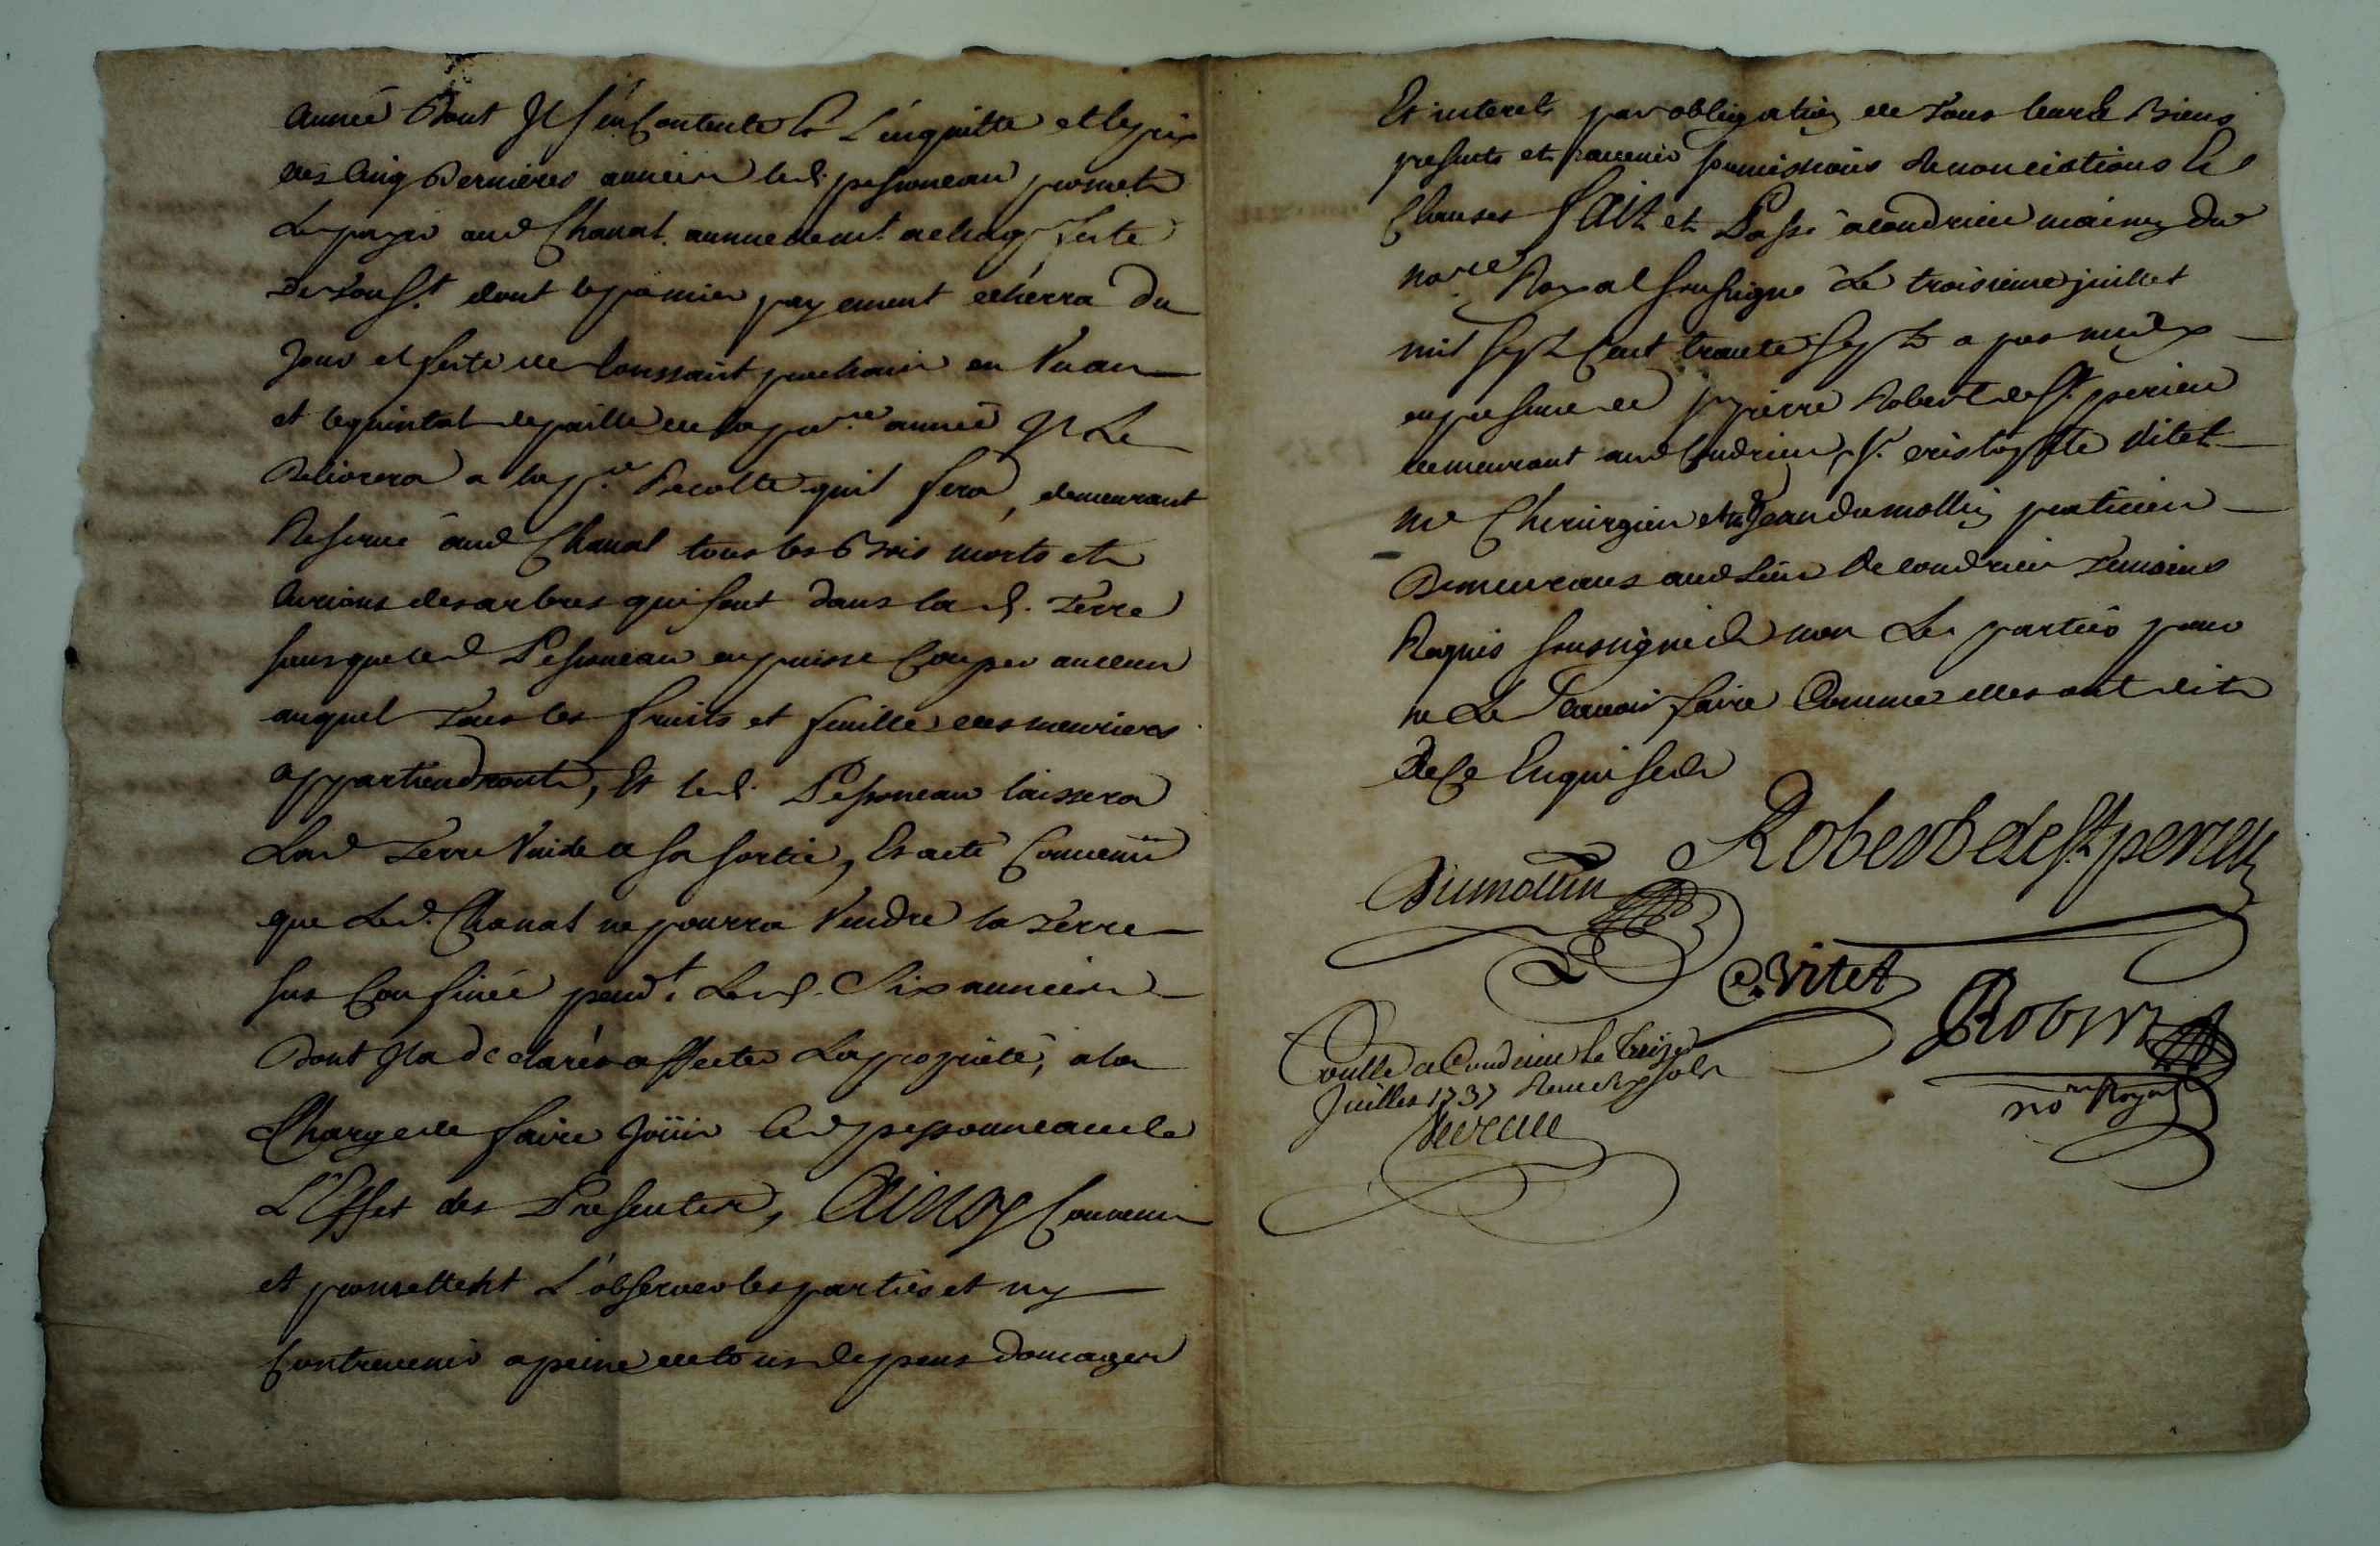 année Dont Il s'en Contente & L'enquitte et le prix
des Cinq Dernieres années led. pessoneau promet
Le payer aud Chanal annuellement a chaq feste
De Touss.t dont le premier payement écherra du
Jour et feste de Toussaint prochain en Vn an
et le quintal de paille de la pre.re année Il Le
Delivrera a la p.re Recolte quil fera, demeurant
Reservé aud Chanal tous les Bois morts et
des arbres qui sont dans lad. Terre
sans que led Pessoneau en puisse Couper aucun
auquel Tous les fruits et feuille des meuriers
appartiendront, Et led. Pessoneau laissera
Lad Terre Vuide a sa sortie, Et a eté Convenü
que Led. Chanal ne pourra Vendre la Terre
sus Confinée pend.t Lesd. Six années
Dont Il a declaré affecter La proprieté, a la
Charge de faire Joüir led pessonneau de
L'Effet des Presentes, Ainsy Convenu
et promettent L'observer les parties et ny
Contrevenir a peine de tous depens domages
Et interets par obligation de Tous leurs Biens
presents et a avenir soumissions Renonciations &
Clauses Fait et Passé a Condrieu maison du
no.re Royal soussigné Le troisieme juillet
mil sept Cent trante sept a pres midy
en presence de s.r pierre Robert de S.t perieu
demeurant aud Condrieu, s.r cristophle Vitet
me Chirurgien et Jean dumollin praticien
Demeurans aud Lieu De Condrieu Temoins
Requis soussignés non Les parties pour
ne Le Scavoir faire Comme elles ont dit
De Ce Enquises
Robert de St perieu
Dumollin
C. Vitet
Robert
nore Royal
Conllé a Condrieu le treize
Juillet 1737 Reçu sols